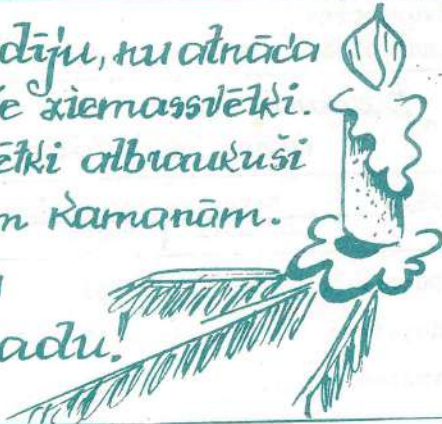 dīju, nu atnāca
e ziemassvētki.
ētki atbraukuši
m kamanām.
adu!